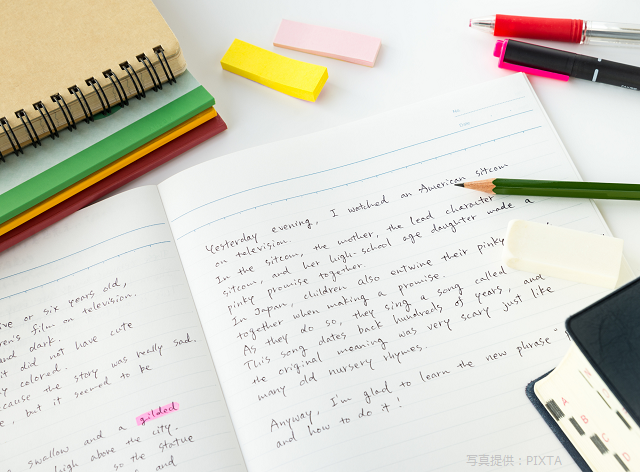 five or six years old,
film on television.
and dark.
it did not have cute
colored.
because the story was really sad.
but it seemed to be
swallow and a gilded
high above the city.
so the statue
and
No.
Date
Yesterday evening, I watched an American sitcom
on television.
In the sitcom, the mother, the lead character
sitcom, and her high-school age daughter made a
pinky promise together.
In Japan, children also entwine their pinky
together when making a promise.
As they do so, they sing a song called
This song dates back hundreds of years, and
the original meaning was very scary just like
many old nursery rhymes.
Anyway, I'm glad to learn the new phrase "
and how to do it!
A
B
C
D
写真提供：PIXTA